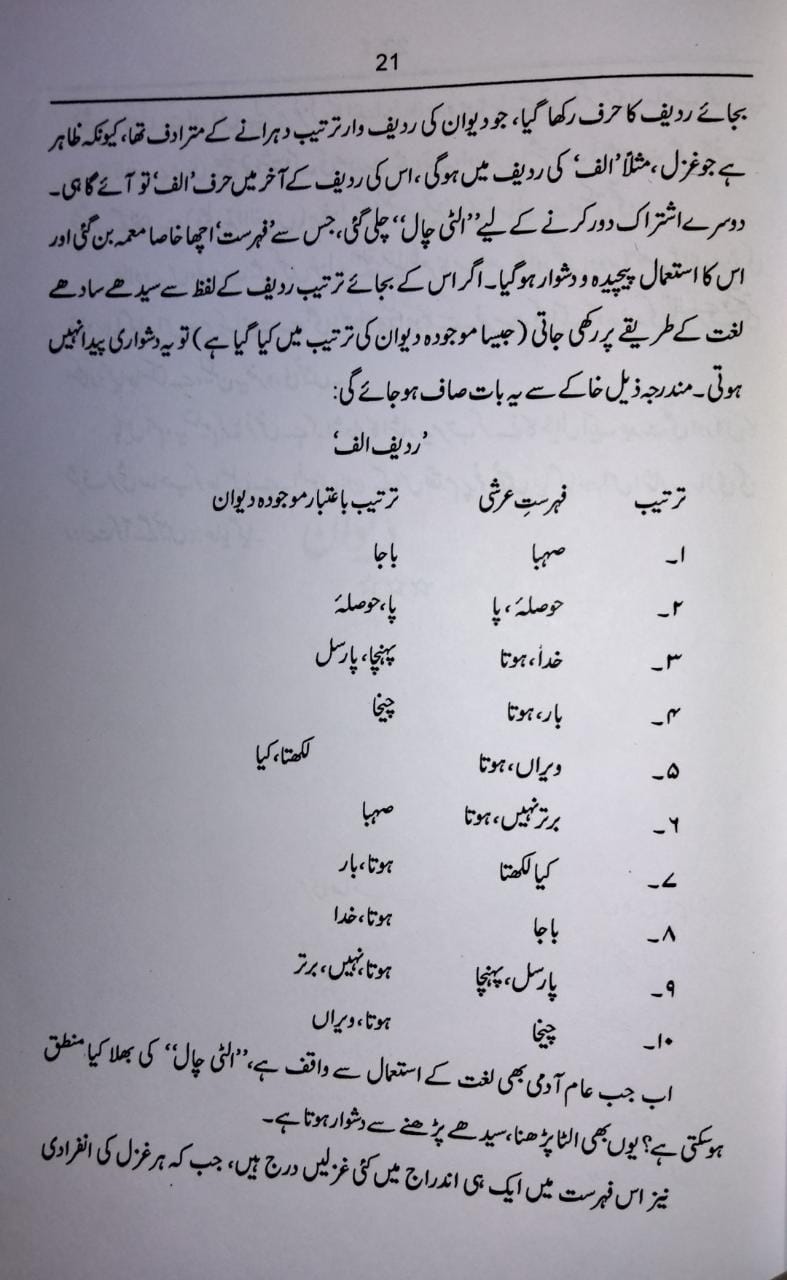 21
بجائے ردیف کا حرف رکھا گیا، جو دیوان کی ردیف وار ترتیب دہرانے کے مترادف تھا، کیونکہ ظاہر
ہے جو غزل، مثلاً ’الف‘ کی ردیف میں ہوگی، اس کی ردیف کے آخر میں حرف ’الف‘ تو آئے گا ہی۔
دوسرے اشتراک دور کرنے کے لیے ’’الٹی چال‘‘ چلی گئی، جس سے ’فہرست‘ اچھا خاصا معمہ بن گئی اور
اس کا استعمال پیچیدہ و دشوار ہو گیا۔ اگر اس کے بجائے ترتیب ردیف کے لفظ سے سیدھے سادھے
لغت کے طریقے پر رکھی جاتی (جیسا موجودہ دیوان کی ترتیب میں کیا گیا ہے) تو یہ دشواری پیدا نہیں
ہوتی۔ مندرجہ ذیل خاکے سے یہ بات صاف ہو جائے گی:
’ردیف الف‘
ترتیب فہرستِ عرشی ترتیب باعتبار موجودہ دیوان
۱۔ صہبا باجا
۲۔ حوصلۂ، پا پا، حوصلۂ
۳۔ خدا، ہوتا پہنچا، پارسل
۴۔ بار، ہوتا چیخا
۵۔ ویراں، ہوتا لکھتا، کیا
۶۔ برتر نہیں، ہوتا صہبا
۷۔ کیا لکھتا ہوتا، بار
۸۔ باجا ہوتا، خدا
۹۔ پارسل، پہنچا ہوتا، نہیں، برتر
۱۰۔ چیخا ہوتا، ویراں
اب جب عام آدمی بھی لغت کے استعمال سے واقف ہے، ’’الٹی چال‘‘ کی بھلا کیا منطق
ہو سکتی ہے؟ یوں بھی الٹا پڑھنا، سیدھے پڑھنے سے دشوار ہوتا ہے۔
نیز اس فہرست میں ایک ہی اندراج میں کئی غزلیں درج ہیں، جب کہ ہر غزل کی انفرادی